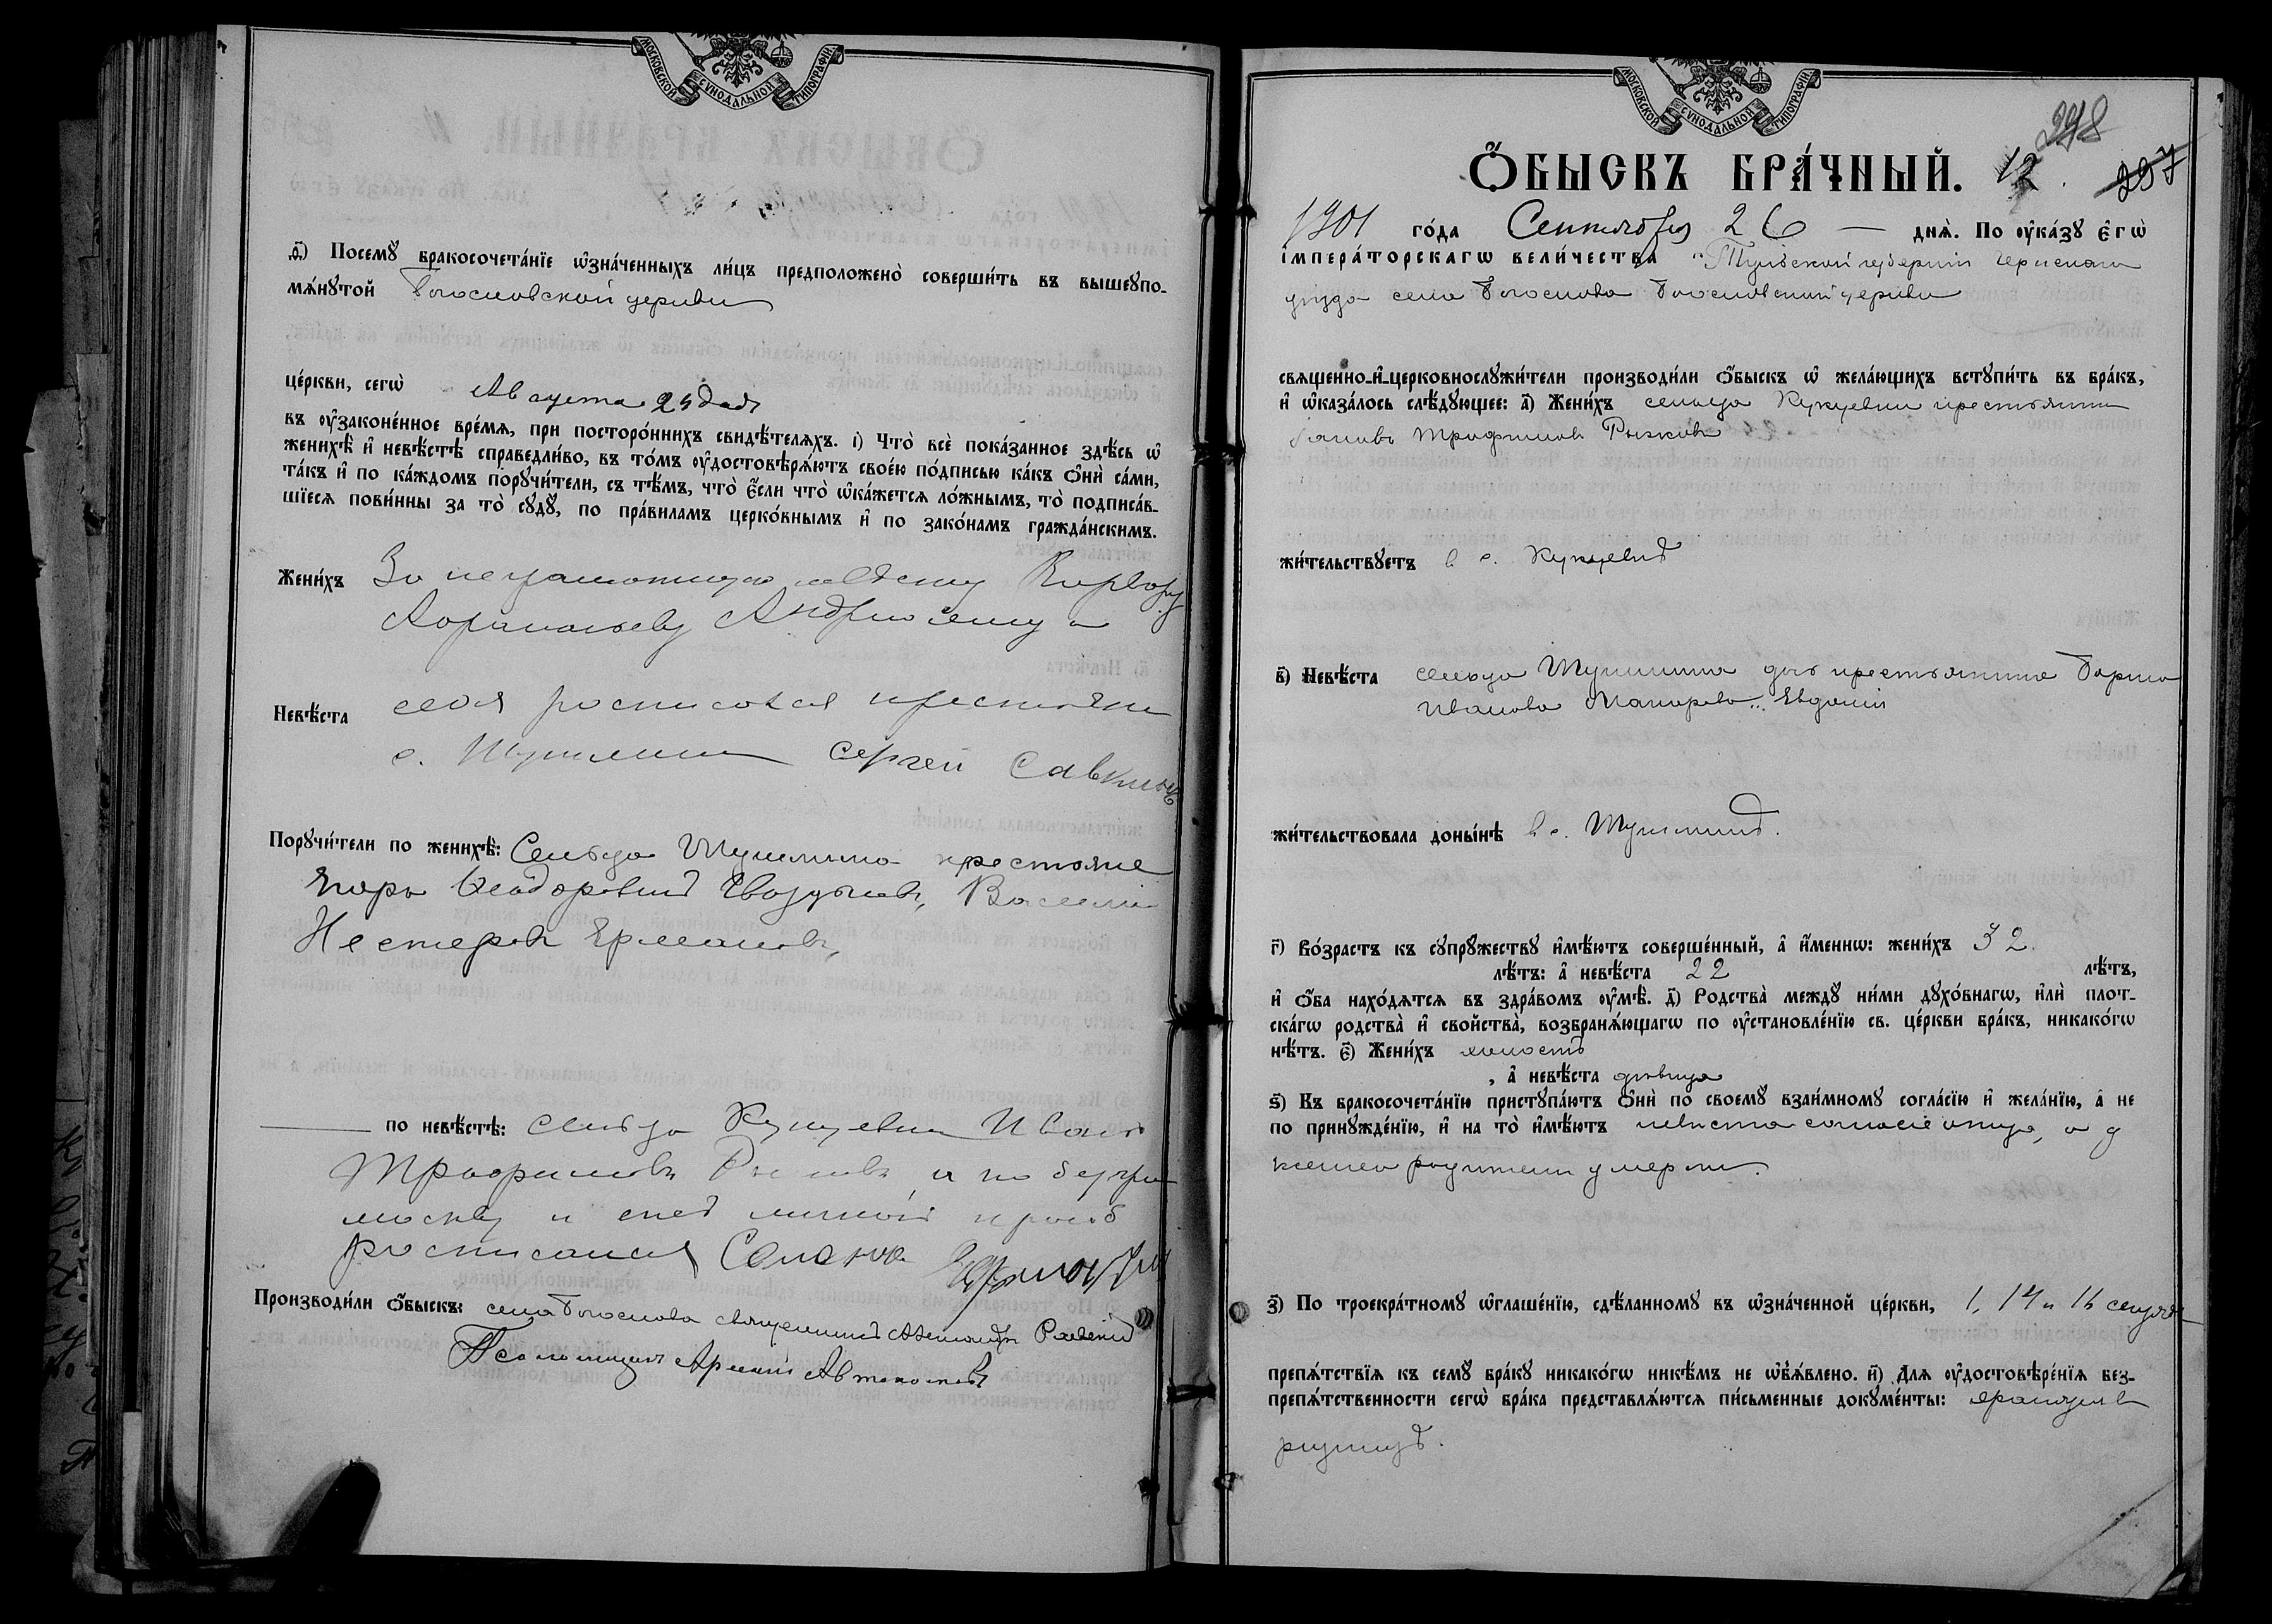 МОСКОВСКОЙ СѴНОДАЛЬНОЙ ТИПОГРАФІИ.
д҃) Посемꙋ̀ бракосочета́нїе ѡ҆зна́ченныхъ ли́цъ предположено̀ соверши́ть въ вышеꙋпо-
мѧ́нꙋтой Богословской церкви
це́ркви, сегѡ̀ Августа 29 дня
въ ᲂу҆законе́нное вре́мѧ, при посторо́ннихъ свидѣ́телѧхъ. і҃) Что̀ всѐ пока́занное здѣ́сь ѡ҆
женихѣ̀ и҆ невѣ́стѣ справедли́во, въ то́мъ ᲂу҆достовѣрѧ́ютъ свое́ю по́дписью ка́къ ѻ҆нѝ са́ми,
та́къ и҆ по ка́ждомъ порꙋчи́тели, съ тѣ́мъ, что̀ є҆́сли что̀ ѡ҆ка́жетсѧ ло́жнымъ, то̀ подписа́в-
шїесѧ пови́нны за то̀ сꙋдꙋ̀, по пра́виламъ церко́внымъ и҆ по зако́намъ гражда́нскимъ.
Жени́хъ За неграмотную невесту
Андрюшину
Невѣ́ста росписался крестьянин
с. Шушмина Сергей Савкинъ
Порꙋчи́тели по женихѣ̀: Сельца Шушмина крестьяне
Егоръ Ѳеодоровичъ Гвоздковъ, Василій
Нестеровъ Ермаковъ,
по невѣ́стѣ: Сельца Кукуевки Иванъ
Трофимовъ а по безгра
мотству и его личной прозьбѣ
росписался
Производи́ли ѻ҆́быскъ: села Богослова священникъ Раевскій
Псаломщикъ Арсеній Автономовъ
МОСКОВСКОЙ СѴНОДАЛЬНОЙ ТИПОГРАФІИ.
298
Ѻ҆́БЫСКЪ БРА́ЧНЫЙ. 12. 297
1901 го́да Сентября 26 — днѧ̀. По ᲂу҆ка́зꙋ є҆гѡ̀
і҆мпера́торскагѡ вели́чества Тульской губерніи Чернскаго
уѣзда села Богослова Богословской церкви
свѧщенно-и҆-церковнослꙋжи́тели производи́ли ѻ҆́быскъ ѡ҆ жела́ющихъ встꙋпи́ть въ бра́къ,
и҆ ѡ҆каза́лось слѣ́дꙋющее: а҃) Жени́хъ сельца Кукуевки крестьянинъ
Трофимовъ Рыжковъ
жи́тельствꙋетъ в с. Кукуевкѣ
в҃) Невѣ́ста сельца Шушмина дочь крестьянина
Иванова Макарова.. Евдокія
жи́тельствовала доны́нѣ в с. Шушминѣ.
г҃) Во́зрастъ къ сꙋпрꙋ́жествꙋ и҆мѣ́ютъ соверше́нный, а҆ и҆́меннѡ: жени́хъ 32.
лѣ́тъ: а҆ невѣ́ста 22 лѣ́тъ,
и҆ ѻ҆́ба нахо́дѧтсѧ въ здра́вомъ ᲂу҆мѣ̀. д҃) Родства̀ междꙋ̀ ни́ми дꙋхо́внагѡ, и҆лѝ плот-
ска́гѡ родства̀ и҆ свойства̀, возбранѧ́ющагѡ по ᲂу҆становле́нїю св. це́ркви бра́къ, никако́гѡ
нѣ́тъ. є҃) Жени́хъ холостъ
, а҆ невѣ́ста дѣвица
ѕ҃) Къ бракосочета́нїю пристꙋпа́ютъ ѻ҆нѝ по своемꙋ̀ взаи́мномꙋ согла́сїю и҆ жела́нїю, а҆ не
по принꙋжде́нїю, и҆ на то̀ и҆мѣ́ютъ невѣста согласіе отца, а у
жениха родители умерли.
з҃) По троекра́тномꙋ ѡ҆глаше́нїю, сдѣ́ланномꙋ въ ѡ҆зна́ченной це́ркви, 1, 14 и 16
препѧ́тствїѧ къ семꙋ̀ бра́кꙋ никако́гѡ никѣ́мъ не ѡ҆б̾ѧ́влено. и҃) Длѧ ᲂу҆достовѣре́нїѧ без-
препѧ́тственности сегѡ̀ бра́ка представлѧ́ютсѧ пи́сьменные докꙋме́нты: